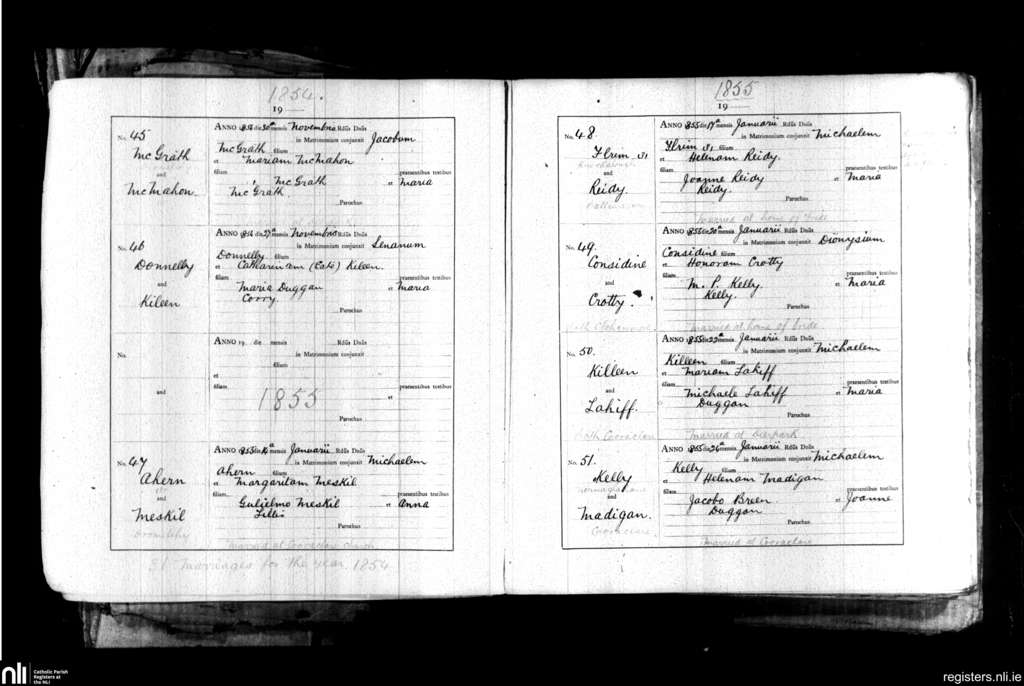 1854.
19
No. 45
McGrath
and
McMahon.
ANNO 1854 die 30a mensis Novembris Rdus Dnus
in Matrimonium conjunxit Jacobum
McGrath filium
et Mariam McMahon
filiam praesentibus testibus
McGrath et Maria
McGrath.
Parochus
No. 46
Donnelly
and
Kileen
ANNO 1854 die 27a mensis Novembris Rdus Dnus
in Matrimonium conjunxit Senanum
Donnelly filium
et Catharinam (Cate) Kileen.
filiam praesentibus testibus
Maria Duggan et Maria
Corry.
Parochus
No.
and
ANNO 19 die mensis Rdus Dnus
in Matrimonium conjunxit
filium
et
filiam praesentibus testibus
1855 et
Parochus
No. 47
Ahern
and
Meskil
ANNO 1855 die mensis Januarii Rdus Dnus
in Matrimonium conjunxit Michaelem
Ahern filium
et Margaritam Meskil
filiam praesentibus testibus
Gulielmo Meskil et Anna
Lillis
Parochus
Married at Cooraclare church
31 Marriages for the year 1854
1855
19
No. 48
and
Reidy
ANNO 1855 die 17a mensis Januarii Rdus Dnus
in Matrimonium conjunxit Michaelem
filium
et Helenam Reidy.
filiam praesentibus testibus
Joanne Reidy et Maria
Reidy.
Parochus
Married at home of bride
No. 49.
Considine
and
Crotty.
ANNO 1855 die 20a mensis Januarii Rdus Dnus
in Matrimonium conjunxit Dionysium
Considine filium
et Honoram Crotty
filiam praesentibus testibus
M. P. Kelly. et Maria
Kelly.
Parochus
Married at home of bride
No. 50.
Killeen
and
Lahiff.
Both Cooraclare
ANNO 1855 die 22a mensis Januarii Rdus Dnus
in Matrimonium conjunxit Michaelem
Killeen filium
et Mariam Lahiff
filiam praesentibus testibus
Michaele Lahiff et Maria
Duggan
Parochus
Married at Deerpark
No. 51.
Kelly
and
Madigan.
Cooraclare.
ANNO 1855 die 26a mensis Januarii Rdus Dnus
in Matrimonium conjunxit Michaelem
Kelly filium
et Helenam Madigan
filiam praesentibus testibus
Jacobo Breen et Joanne
Duggan
Parochus
Married at Cooraclare
nli Catholic Parish
Registers at
the NLI
registers.nli.ie